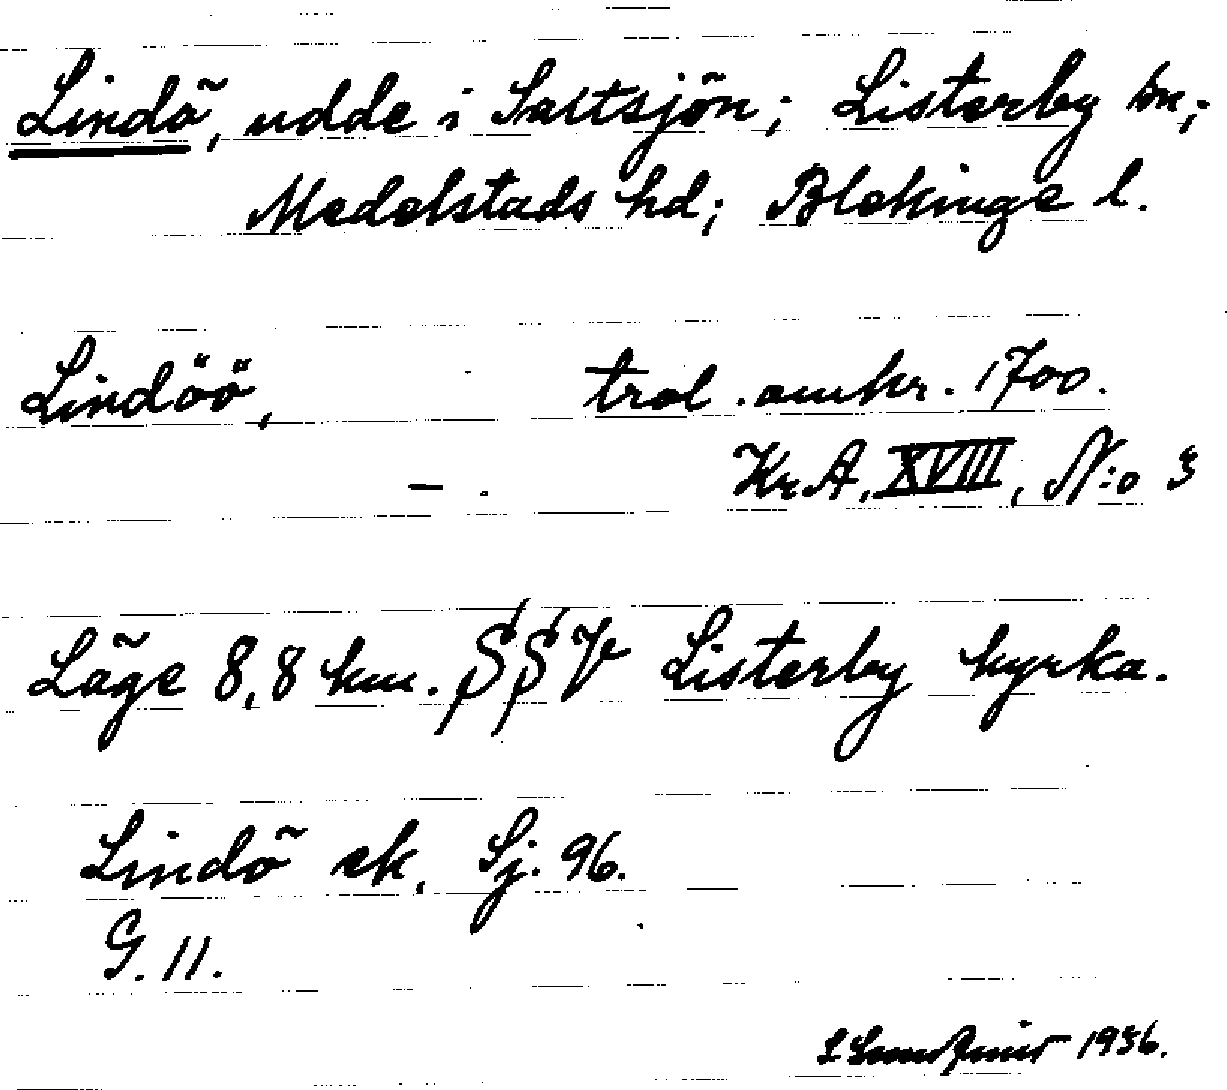 Lindö, udde i Saltsjön; Listerby sn;
Medelstads hd; Blekinge l.
Lindöö, trol. omkr. 1700.
— . Kr.A. XVIII, N:o 3
Läge 8,8 km. SSV Listerby kyrka.
Lindö ek. Sj. 96.
G. 11.
1936.